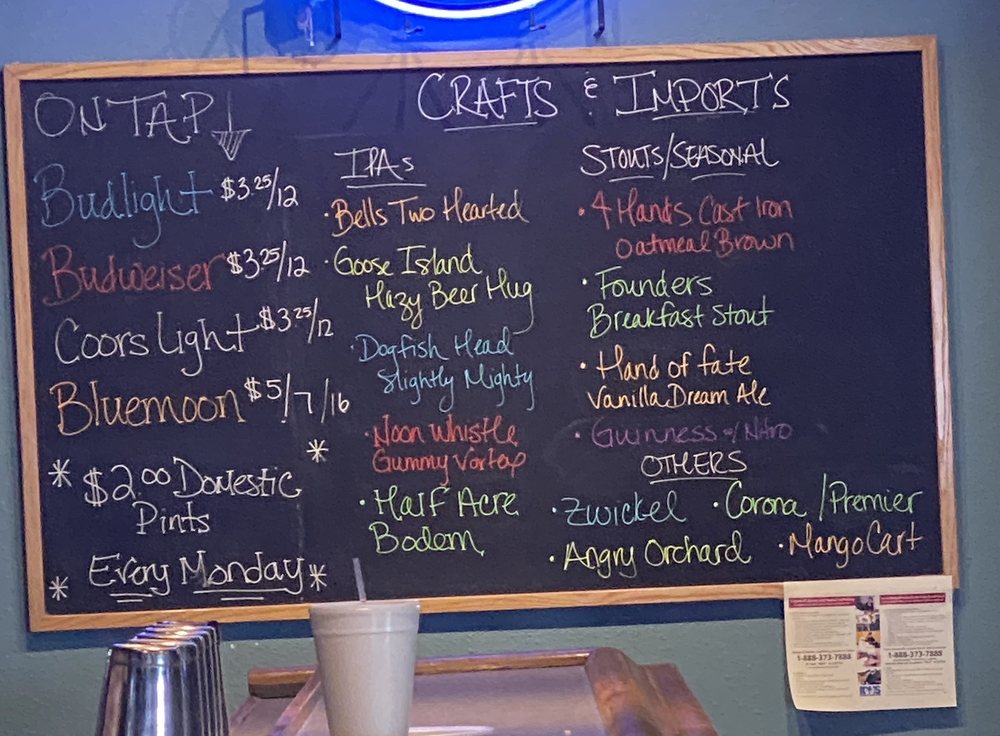 ON TAP
Budlight $3.25/12
Budweiser $3.25/12
Coors Light $3.25/12
Bluemoon $5/7/16
* $2.00 Domestic *
Pints
* Every Monday *
CRAFTS & IMPORTS
IPAs
· Bells Two Hearted
· Goose Island
Hazy Beer Hug
· Dogfish Head
Slightly Mighty
· Noon Whistle
Gummy Vortex
· Half Acre
Bodem
STOUTS/SEASONAL
· 4 Hands Cast Iron
Oatmeal Brown
· Founders
Breakfast Stout
· Hand of fate
Vanilla Dream Ale
· Guinness w/ Nitro
OTHERS
· Zwickel · Corona /Premier
· Angry Orchard · Mango Cart
1-888-373-7888 1-888-373-7888